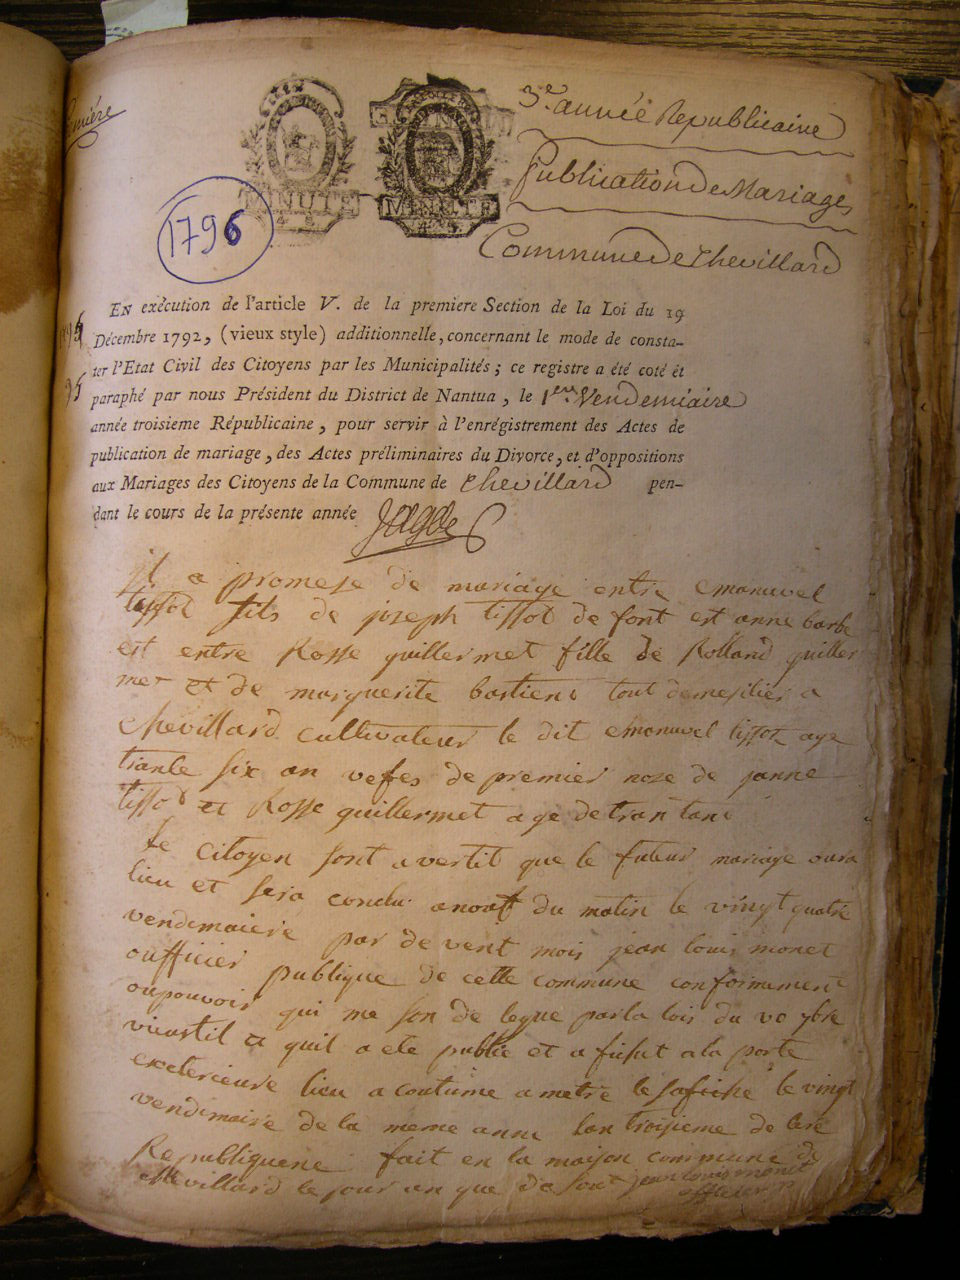 3e année Republicaine
Publication de Mariages
Commune de Chevillard
MINUTE MINUTE
1796
En exécution de l'article V. de la premiere Section de la Loi du 19
Décembre 1792, (vieux style) additionnelle, concernant le mode de consta-
ter l'Etat Civil des Citoyens par les Municipalités; ce registre a été coté et
paraphé par nous Président du District de Nantua, le 1er. Vendemiaire
année troisieme Républicaine, pour servir à l'enrégistrement des Actes de
publication de mariage, des Actes préliminaires du Divorce, et d'oppositions
aux Mariages des Citoyens de la Commune de Chevillard pen-
dant le cours de la présente année
il a promese de mariage entre emanuvel
tissot fils de joseph tissot de font est anne barbe
est entre Rosse guillermet fille de Rolland guiller
met et de marguerite bastient tout demesilier a
Chevillard cultivateur le dit emanuvel tissot age
trante six an vefes de premier nose de janne
tissot et Rosse guillermet age de tran tani
le citoyen sont avertit que le futeur mariage aura
lieu et sera conclu du matin le vingt quatre
vendemaiere par de vent mois jean louis monet
oufficier publique de cette commune conformement
oupouvoir qui me son de legue par la lois du vo ybre
vieustil et quil a ete publie et a fichet a la porte
exeterieure lieu a coutume a metre le safiche le vingt
vendemaire de la meme anne lan troisieme de lere
Republiquene fait en la maison commune de
chevillard le jour an que de sout jean louis monet
officier